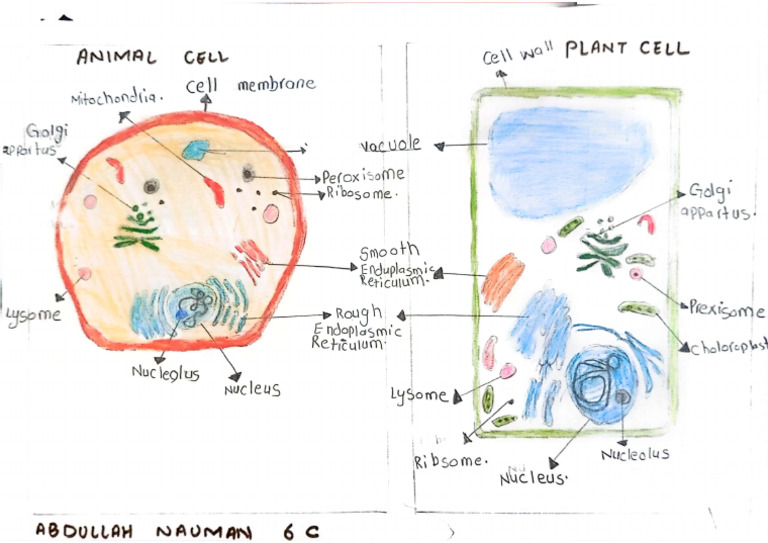 ANIMAL CELL
Cell wall PLANT CELL
Mitochondria.
Cell membrane
Golgi
appartus
vacuole
Peroxisome
Ribosome.
Golgi
appartus.
Smooth
Enduplasmic
Reticulum.
Lysome
Rough
Endoplasmic
Reticulum.
Prexisome
Choloroplast
Nucleolus
Nucleus
Lysome
Ribsome.
Nucleus.
Nucleolus
ABDULLAH NAUMAN 6 C